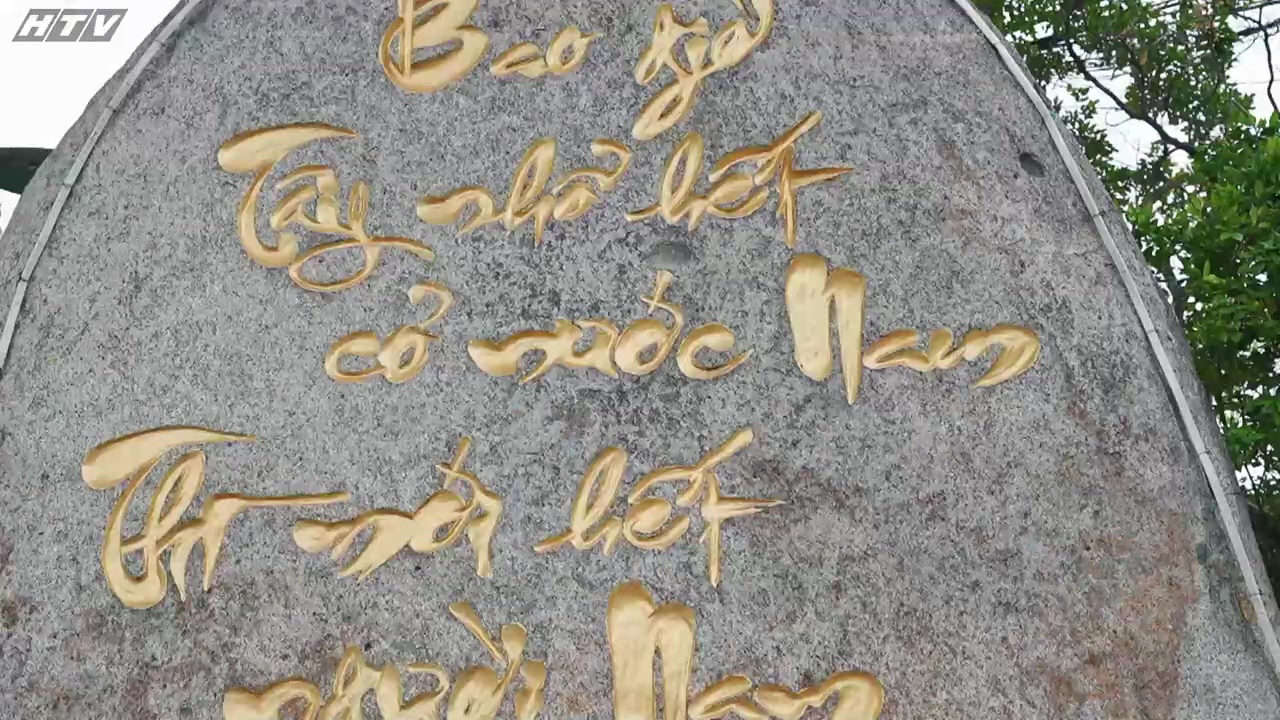 HTV
Bao giờ
Tây nhổ hết
cỏ nước Nam
Thì mới hết
người Nam